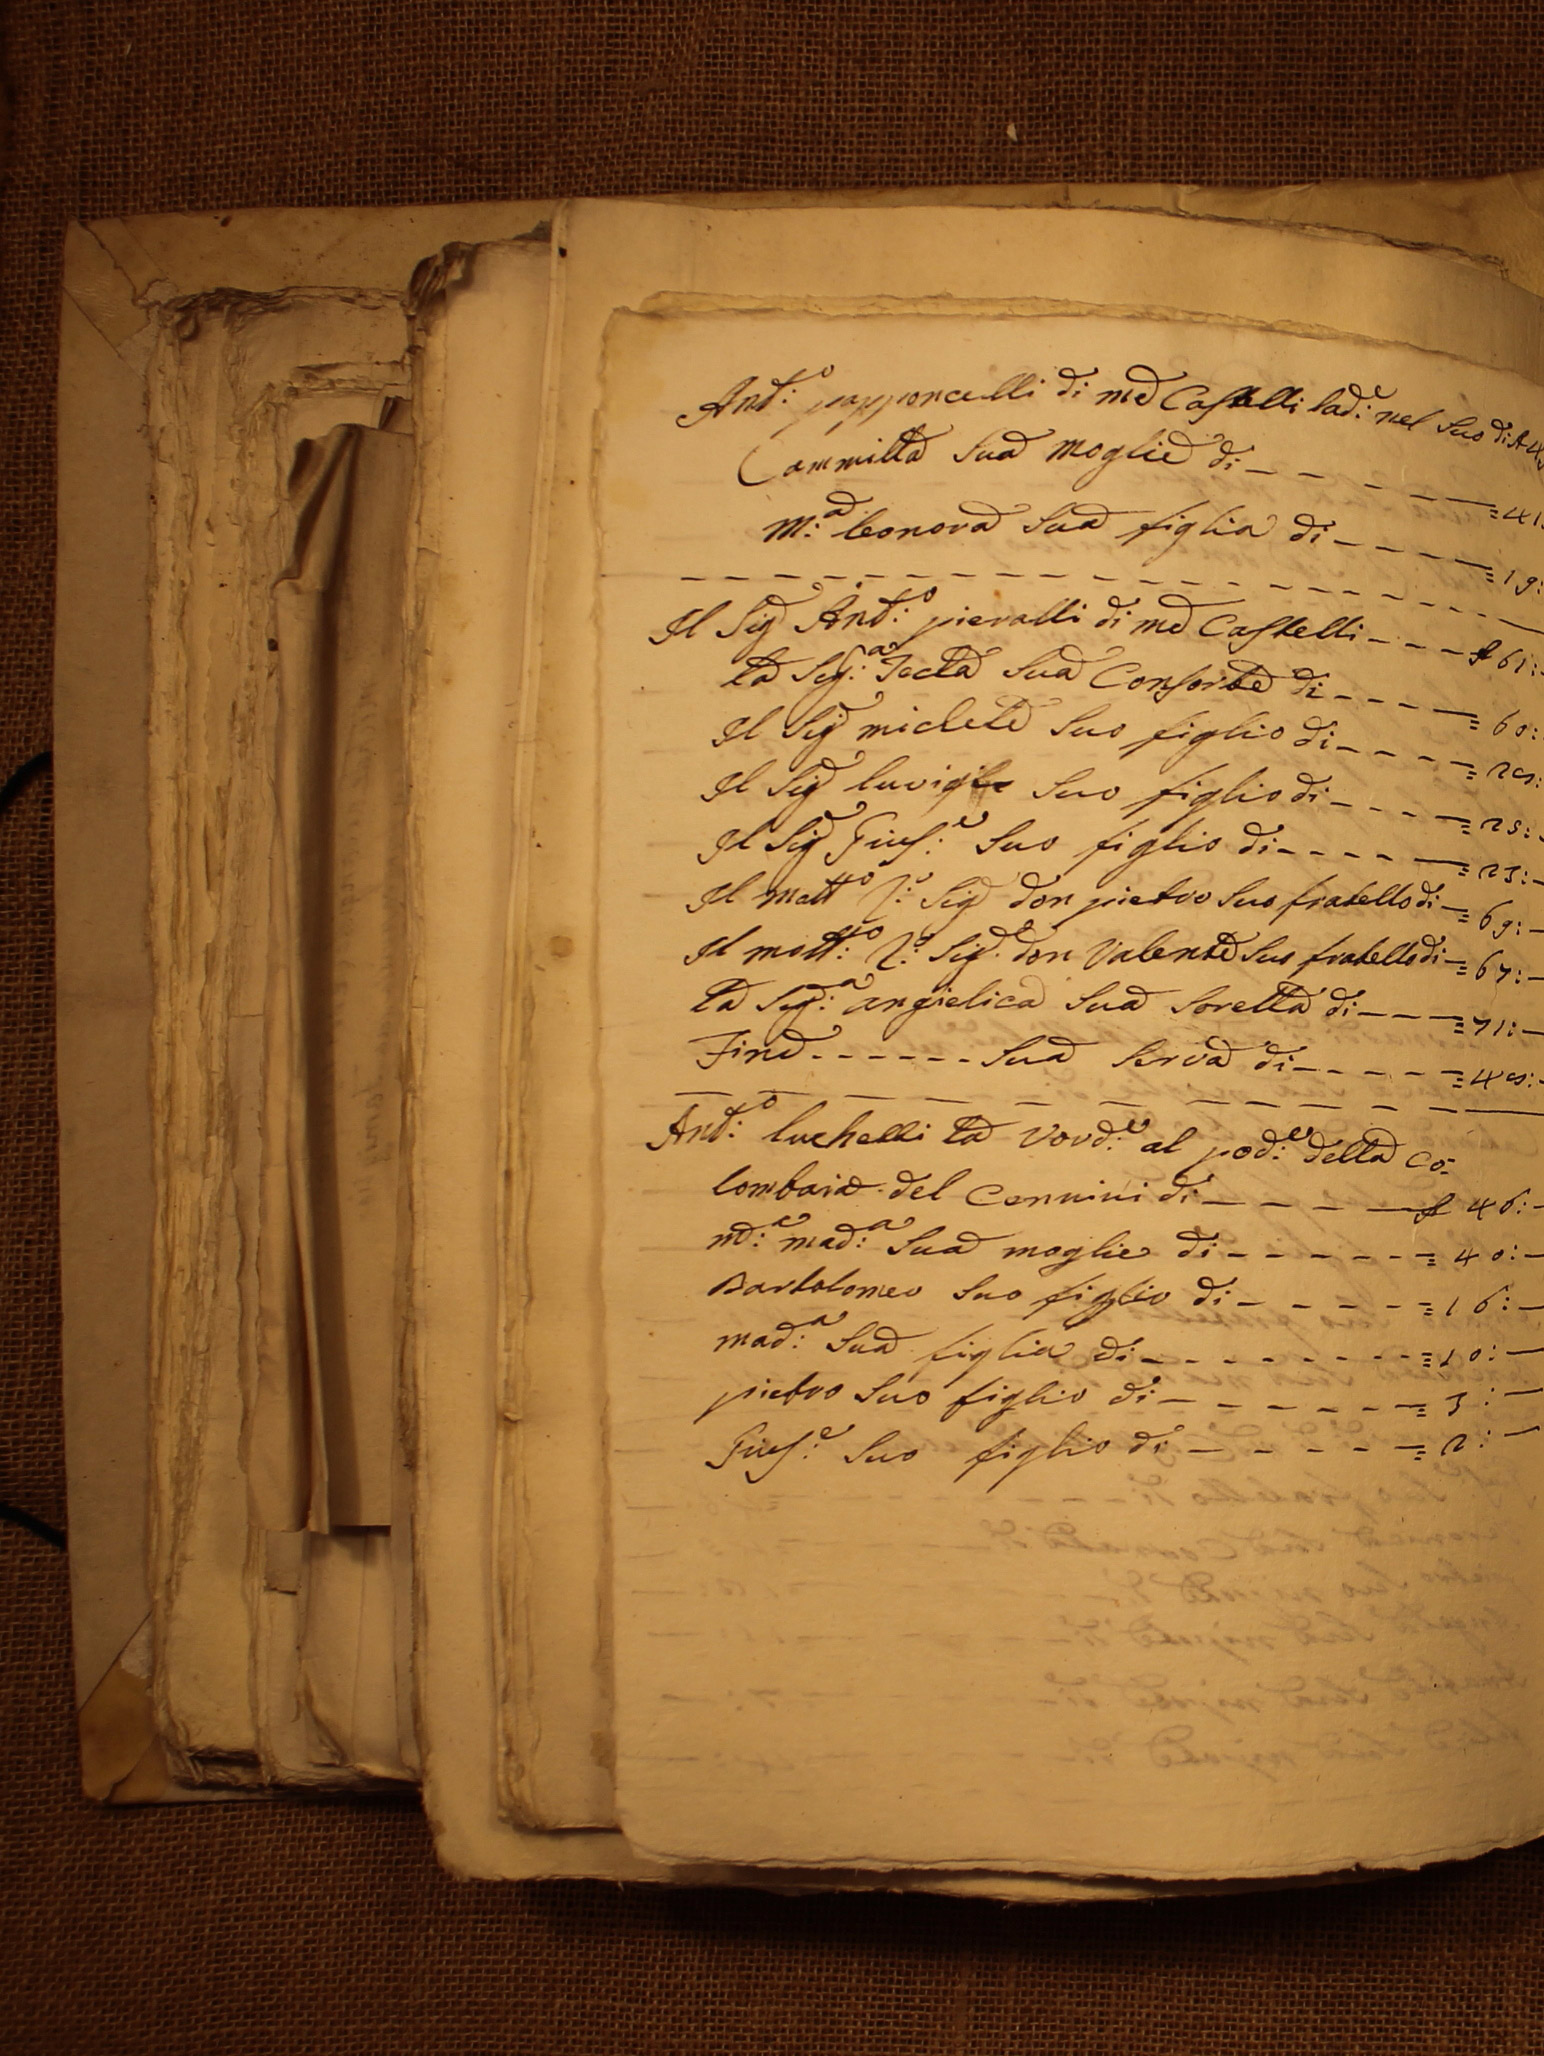 Ant:o papponcelli di me Castelli lad:e nel suo di A 4
Cammilla Sua moglie di – – – – – = 41:
M:a leonora Sua figlia di – – – – = 19:
Il Sig Ant:o pieralli di me Castelli – – – A 61:
la Sig:a Tecla Sua Consorte di – – – – = 60:
Il Sig michele Suo figlio di – – – – =
Il Sig luvigi Suo figlio di – – – – = 25:
Il Sig Gius:e Suo figlio di – – – – = 23:
Il Molt:o R:o Sig don pietro Suo fratello di – = 69:
Il molt:o R:o Sig:e don Valente Suo fratello di – = 67:
la Sig:a angielica Sua Sorella di – – – = 71:
– – – – – – Sua Serva di – – – – =
Ant:o luchelli la vord:e al pod:e della co-
lombaia del Cennini di – – – – A 46:
md:e mad:a Sua moglie di – – – – – = 40:
Bartolomeo Suo figlio di – – – – – = 16:
mad:a Sua figlia di – – – – – – = 10:
pietro Suo figlio di – – – – – – = 3:
Gius:e Suo figlio di – – – – – = 2: